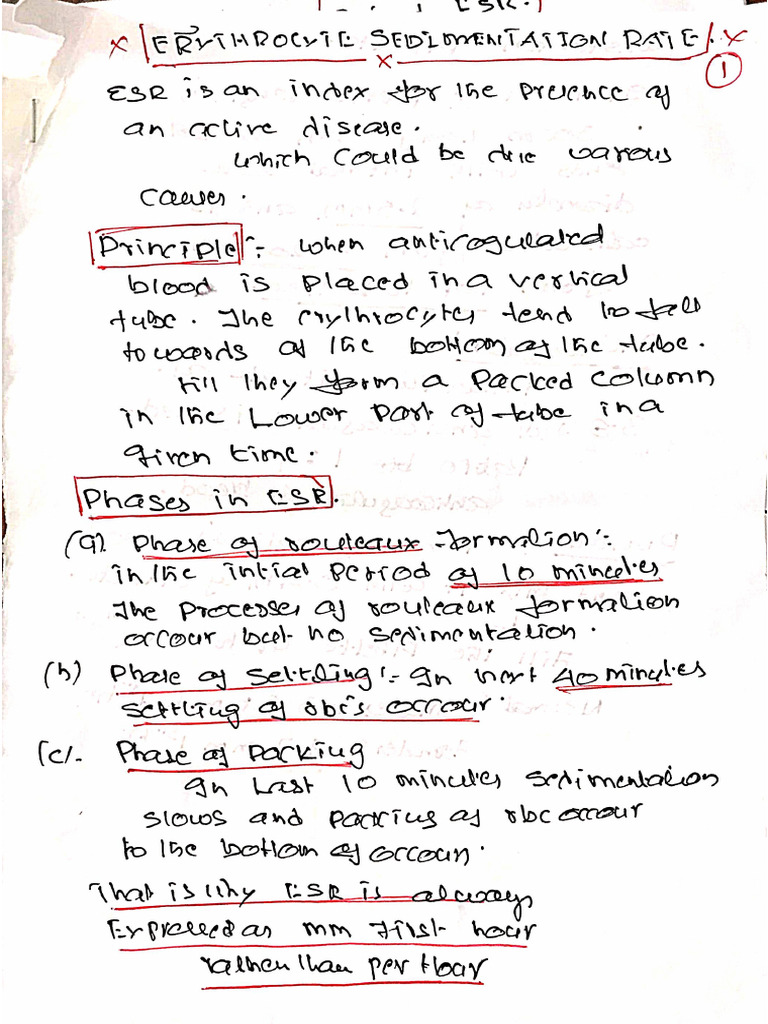 ESR.
ERYTHROCYTE SEDIMENTATION RATE.
1
ESR is an index for the presence of
an active disease.
which could be due varous
causes.
Principle :- when anticogulated
blood is placed in a vertical
tube. The erythrocytes tend to fall
towards of the bottom of the tube.
till they form a packed column
in the Lower part of tube in a
given time.
Phases in ESR.
(a) Phase of rouleaux formation :-
in the intial period of 10 minutes
The processes of rouleaux formation
occour but no sedimentation.
(b) Phase of settling :- In next 40 minutes
settling of rbc's occour.
(c). Phase of packing
In Last 10 minutes sedimentation
slows and packing of rbc occour
to the bottom of occour.
That is why ESR is always
Expressed as mm first hour
rather than per Hour